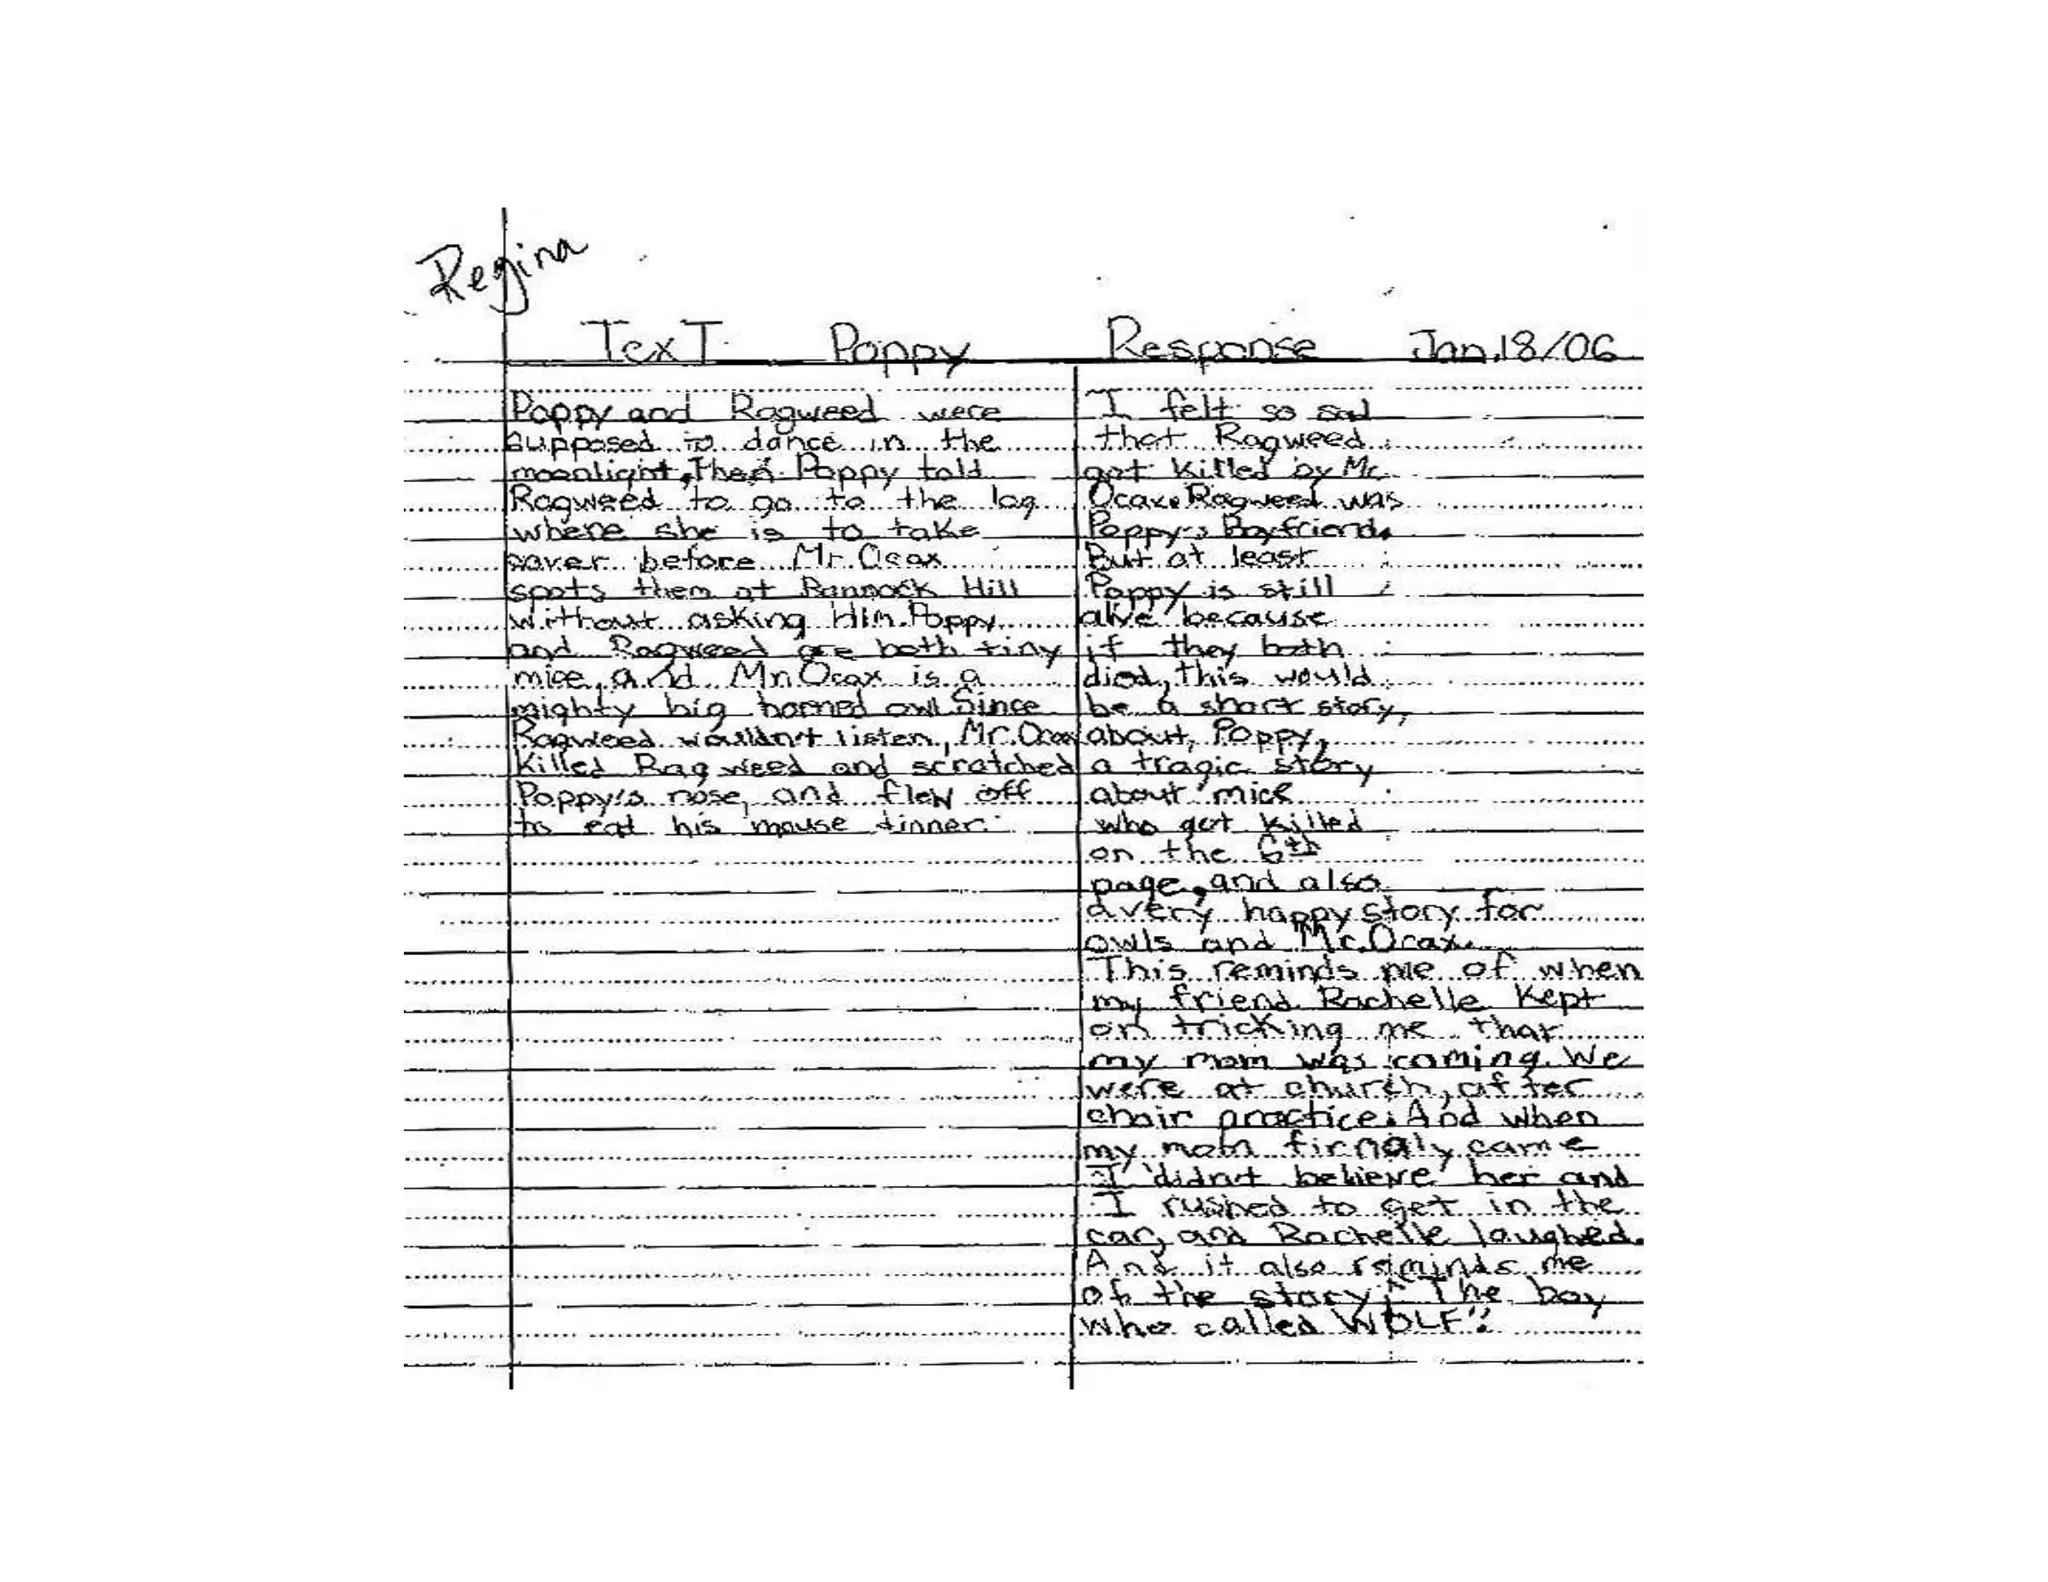 Regina
Text Poppy Response Jan.18/06
Poppy and Ragweed were
supposed to dance in the
moonlight. Then Poppy told
Ragweed to go to the log
where she is to take
caver before Mr.Ocax
spots them at Bannock Hill
without asking Him. Poppy
and Ragweed are both tiny
mice, and Mr. Ocax is a
mighty big horned owl. Since
Ragweed wouldn't listen, Mr. Ocax
killed Ragweed and scratched
Poppy's nose, and flew off
to eat his mouse dinner.
I felt so sad
that Ragweed
got killed by Mr.
Ocax. Ragweed was
Poppy's Boyfriend.
But at least
Poppy is still
alive because
if they both
died, this would
be a short story,
about, Poppy,
a tragic story
about mice
who got killed
on the 6th
page, and also
a very happy story for
owls and Mr. Ocax.
This reminds me of when
my friend Rachelle kept
on tricking me that
my mom was coming. We
were at church, after
choir practice. And when
my mom firnally came
I didn't believe her and
I rushed to get in the
car, and Rachelle laughed.
And it also reminds me
of the story; "The boy
who called WOLF"!